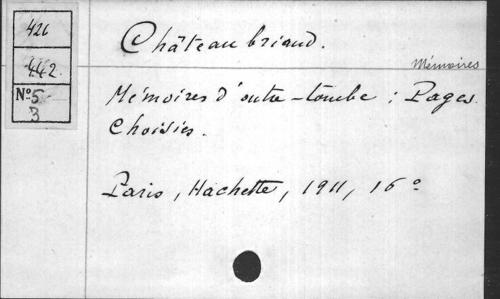 426
442.
Nº 5
3
Châteaubriand.
Mémoires
Mémoires d'outre-tombe : Pages
Choisies.
Paris, Hachette, 1911, 16º